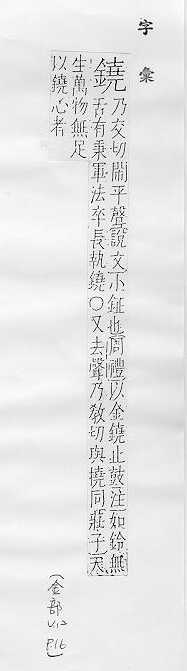 字彙
鐃 乃交切鬧平聲說文小鉦也周禮以金鐃止鼓注如鈴無
舌有秉軍法卒長執鐃○又去聲乃教切與撓同莊子天
生萬物無足
以鐃心者
(金部
V.12
P.16)